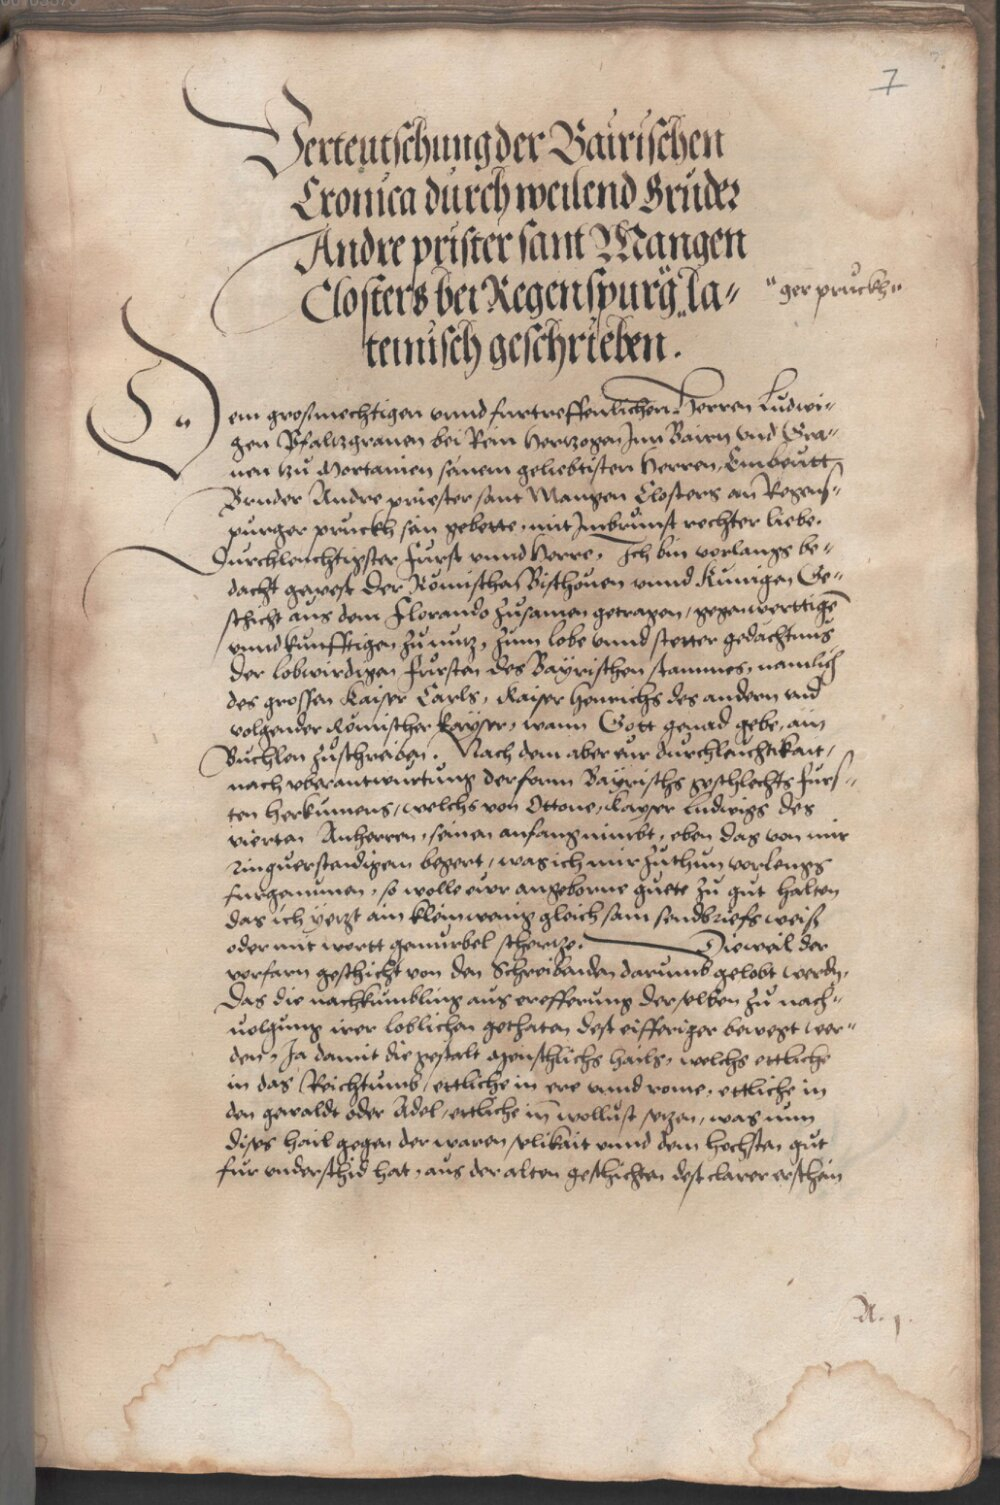 7
Verteutschung der Bairischen
Cronica durch weilend Bruder
Andre prister sant Mangen
Closters bei Regenspurg „la-
"ger pruckh"
teinisch geschrieben.
Dem grosmechtigen vnnd furtreffenlichen Herren Ludwi-
gen Pfaltzgrauen bei Rein Hertzogen Inn Bairn vnd Gra-
uen tzu Mortanien seinem geliebtisten Herren, Embeutt
Bruder Andre priester sant Mangen Closters an Regens-
purger pruckh sein gebette, mit Inbrunst rechter liebe.
Durchleuchtigster Furst vnnd Herre, Ich bin vorlangs be-
dacht gewest der Römischen Bischouen vnnd Kunigen Ge-
schicht aus dem Florando zusamen getragen, gegenwerttigen
vnnd kunfftigen zu nutz, zum lobe vnnd stetter gedachtnus
der lobwirdigen Fursten des Bayrischen stammes, namlich
des grossen Kaiser Carls, Kaiser Henrichs des andern vnd
volgender Römischer Kayser, wann Gott genad gebe, ain
Buchlen zuschreiben. Nach dem aber eur durchleuchtikait,
nach vberantwurtung der form Bayrischs geschlechts Furs-
ten herkumens, welchs von Ottone, Kayser Ludwigs des
vierten Anherren, seinen anfang nimbt, eben das von mir
ringuerstendigem begert, was ich mir zuthun vorlengs
furgenumen, so wolle eur angeborne guete zu gut halten
das ich yetzt ain klein wenig gleich sam sendbriefs weiß
oder mit wortt gemurbel schertze. Dieweil der
vorfarn geschicht von den Schreibenden darumb gelobt werdn,
Das die nachkumbling aus erefferung derselben zu nach-
uolgung irer loblichen gethaten dest eifferiger bewegt wer-
den, Ja damit die gestalt menschlichs hails, welchs ettliche
in das Reichtumb, ettliche in ere vnnd rome, ettliche in
den gewaldt oder Adel, ettliche in wollust setzen, was nun
dises hail gegen der waren selikait vnnd dem hochsten gut
fur vnderschid hat, aus der alten geschichten dest clarer erschein
A. j.